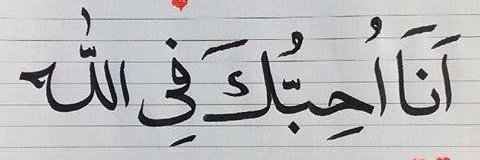 اَنَا اُحِبُّكَ فِي اللّٰه